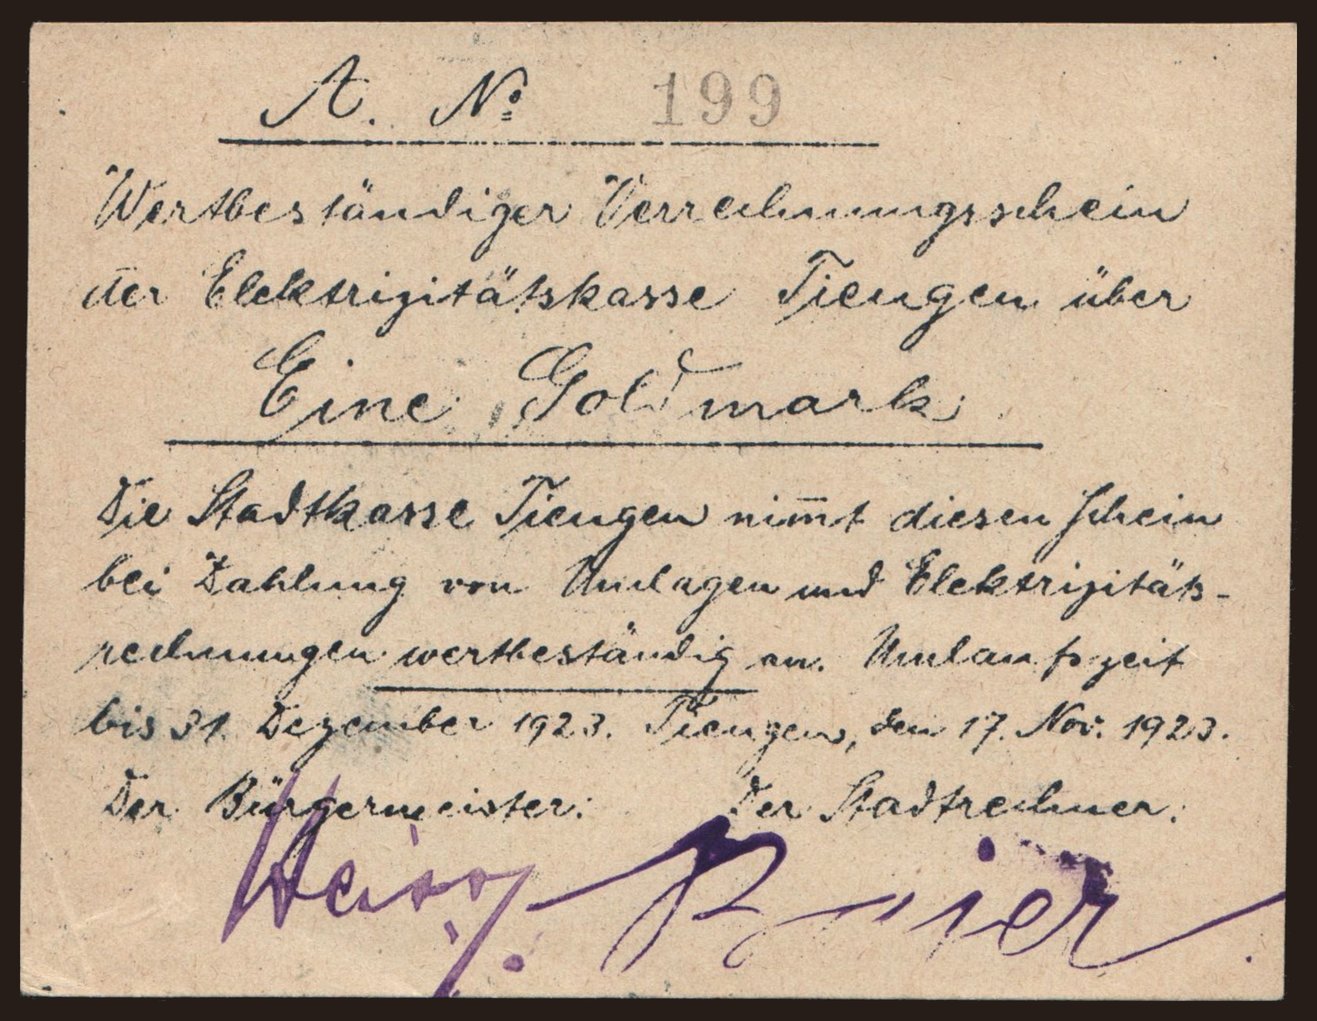 A. № 199
Wertbeständiger Verrechnungsschein
der Elektrizitätskasse Tiengen über
Eine Goldmark
Die Stadtkasse Tiengen nim̅t diesen Schein
bei Zahlung von Umlagen und Elektrizitäts-
rechnungen wertbeständig an. Umlaufszeit
bis 31. Dezember 1923. Tiengen, den 17. Nov. 1923.
Der Bürgermeister: Der Stadtrechner: